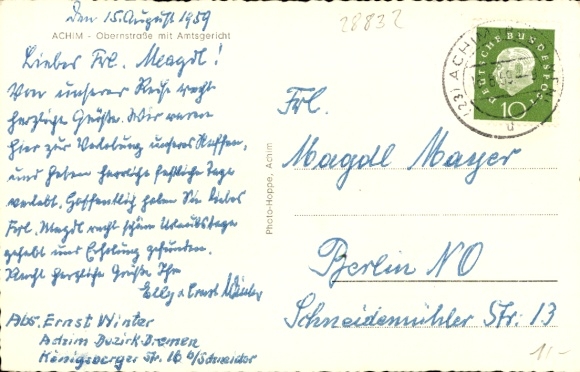 den 15. August 1959
ACHIM - Obernstraße mit Amtsgericht
Liebes Frl. Magdl!
Von unserer Reise recht
herzliche Grüße. Wir waren
hier zur Verlobung unseres Neffen,
und haben herrliche festliche Tage
verlebt. Hoffentlich haben Sie liebes
Frl. Magdl recht schöne Urlaubstage
gehabt und Erholung gefunden.
Recht herzliche Grüße Ihr
Elly u. Ernst Winter
Abs. Ernst Winter
Achim Bezirk-Bremen
Königsberger Str. 16 b/Schneider
Photo-Hoppe, Achim
28832
DEUTSCHE BUNDESPOST
10
(23) ACHIM
Frl.
Magdl Mayer
Berlin NO
Schneidemühler Str. 13
11.-